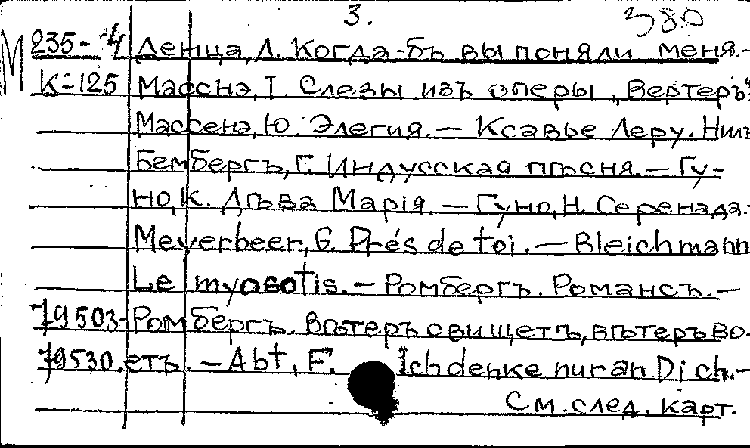 3. 380
М 235-4 Денца, Л. Когда-бъ вы поняли меня.-
К-125 Массиэ, Т. Слезы изъ оперы „Вертеръ"
Массенэ, Ю. Элегия. - Ксавье Леру. Нилъ
Бембергъ, Г. Индусская пѣсня. - Гу-
но, К. Дѣва Марія. - Гуно, Н. Серенада.-
Meyerbeer, G. Prés de toi. - Bleichmann
Le myosotis. - Ромбергъ. Романсъ. -
79503- Ромбергъ. Вѣтеръ свищетъ, вѣтеръ во-
79530. етъ. - Abt, F. Ich denke nur an Dich.-
См. след. карт.